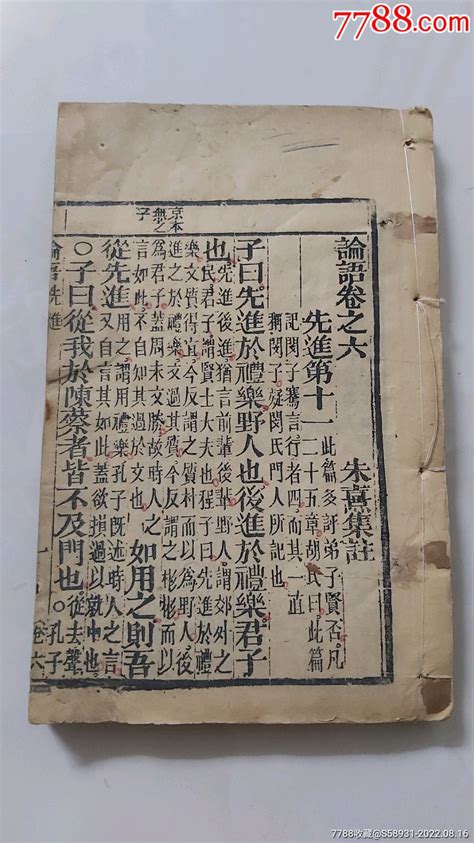 7788.com
論語卷之六 朱熹集註
先進第十一 此篇多評弟子賢否凡
二十五章胡氏曰此篇
記閔子騫言行者四而其一直
稱閔子疑閔氏門人所記也
子曰先進於禮樂野人也後進於禮樂君子
也 先進後進猶言前輩後輩野人謂郊外之
民君子謂賢士大夫也程子曰先進於禮
樂文質得宜今反謂之質朴而以為野人後
進之於禮樂文過其質今反謂之彬彬而以
為君子蓋周末文勝故時人之
言如此不自知其過於文也 如用之則吾
從先進 用之謂用禮樂孔子既述時人之言
又自言其如此蓋欲損過以就中也
○子曰從我於陳蔡者皆不及門也 從去聲
○孔子
京本
無之
子
論語先進 一 卷六
7788收藏@S58931-2022.08.16